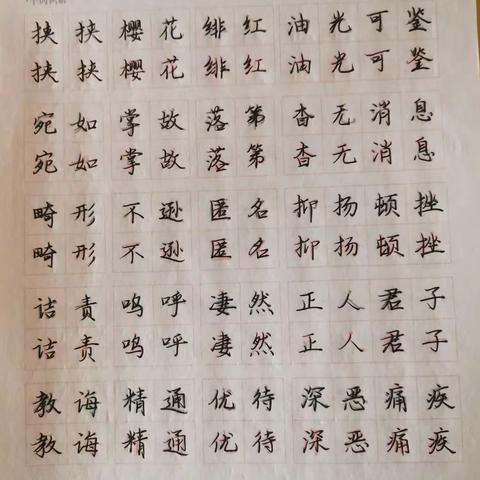 挟挟樱花绯红油光可鉴
挟挟樱花绯红油光可鉴
宛如掌故落第杳无消息
宛如掌故落第杳无消息
畸形不逊匿名抑扬顿挫
畸形不逊匿名抑扬顿挫
诘责呜呼凄然正人君子
诘责呜呼凄然正人君子
教诲精通优待深恶痛疾
教诲精通优待深恶痛疾